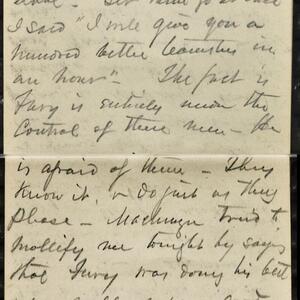 I said "I will give you a
hundred better launches in
an hour" - The fact is
Fury is entirely under the
Control of these men - He
is afraid of them - They
know it, & do just as they
please - tried to
mollify me tonight by saying
that Fury was doing his best